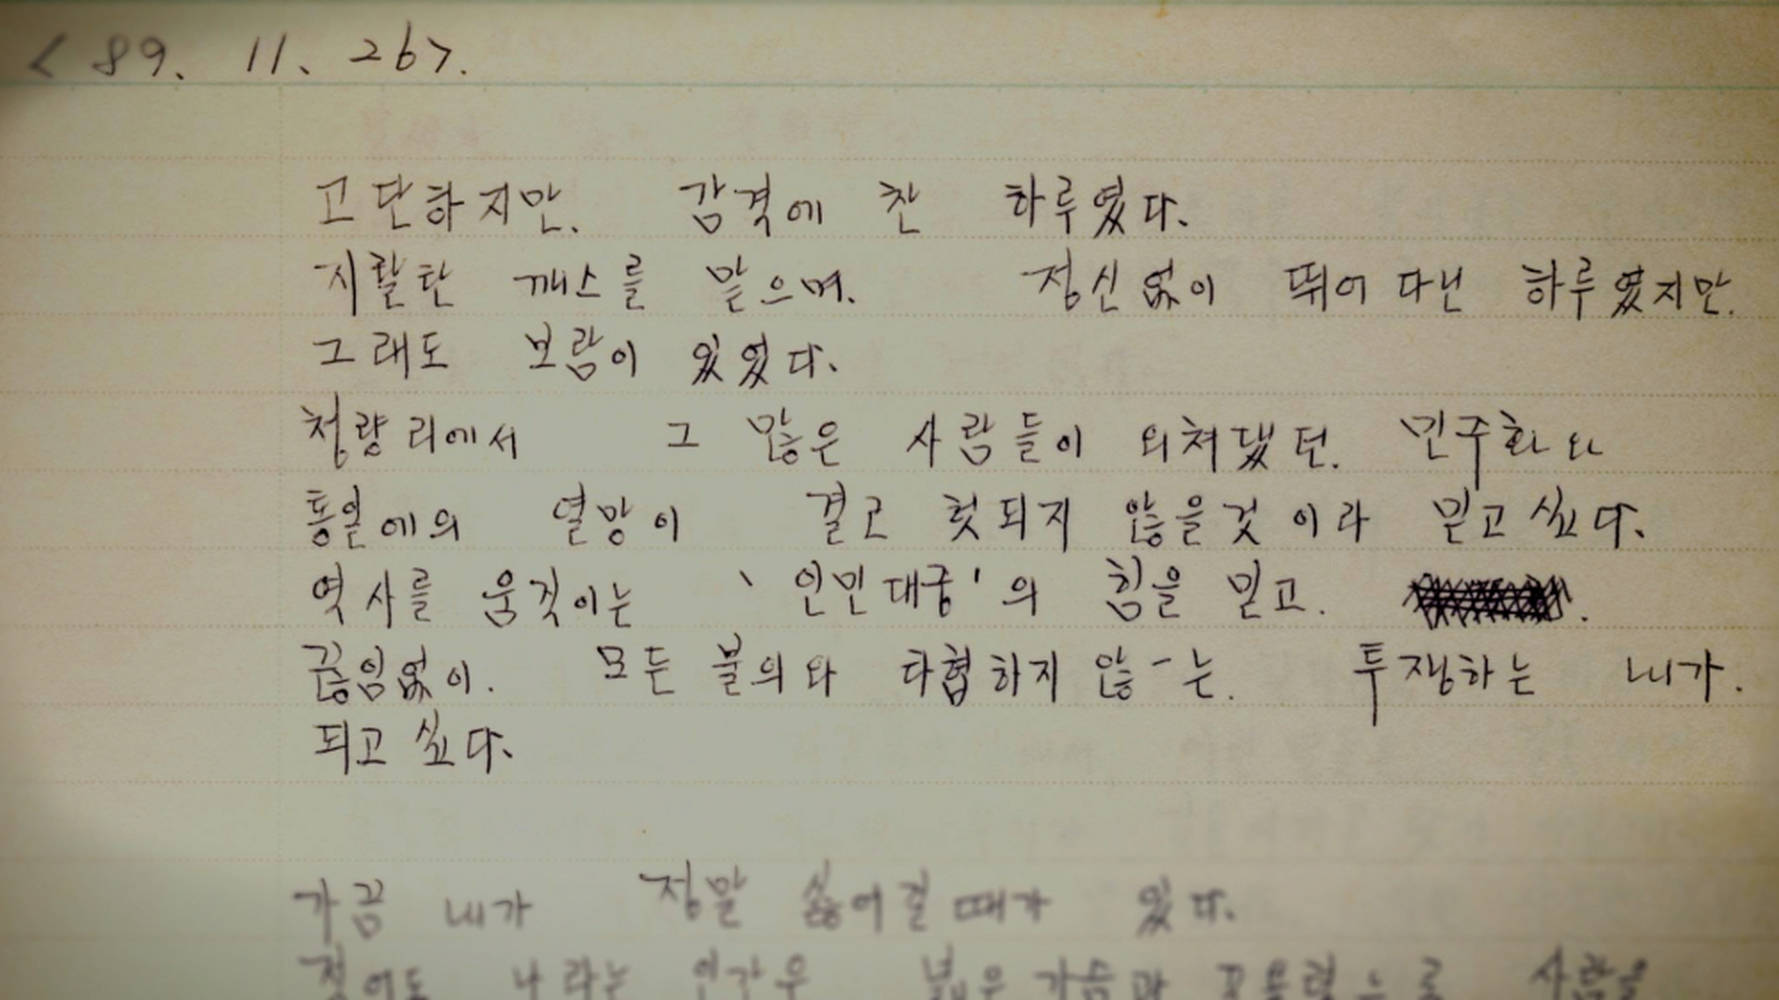 < 89. 11. 26>.
고단하지만. 감격에 찬 하루였다.
지랄탄 깨스를 맡으며. 정신없이 뛰어 다닌 하루였지만.
그래도 보람이 있었다.
청량리에서 그 많은 사람들이 외쳐댔던. 민주화와
통일에의 열망이 결코 헛되지 않을것이라 믿고싶다.
역사를 움직이는 '인민대중'의 힘을 믿고.
끊임없이. 모든 불의와 타협하지 않는. 투쟁하는 내가.
되고싶다.
가끔 내가 정말 싫어질때가 있다.
적어도 나라는 인간은 넓은 가슴과 사람을